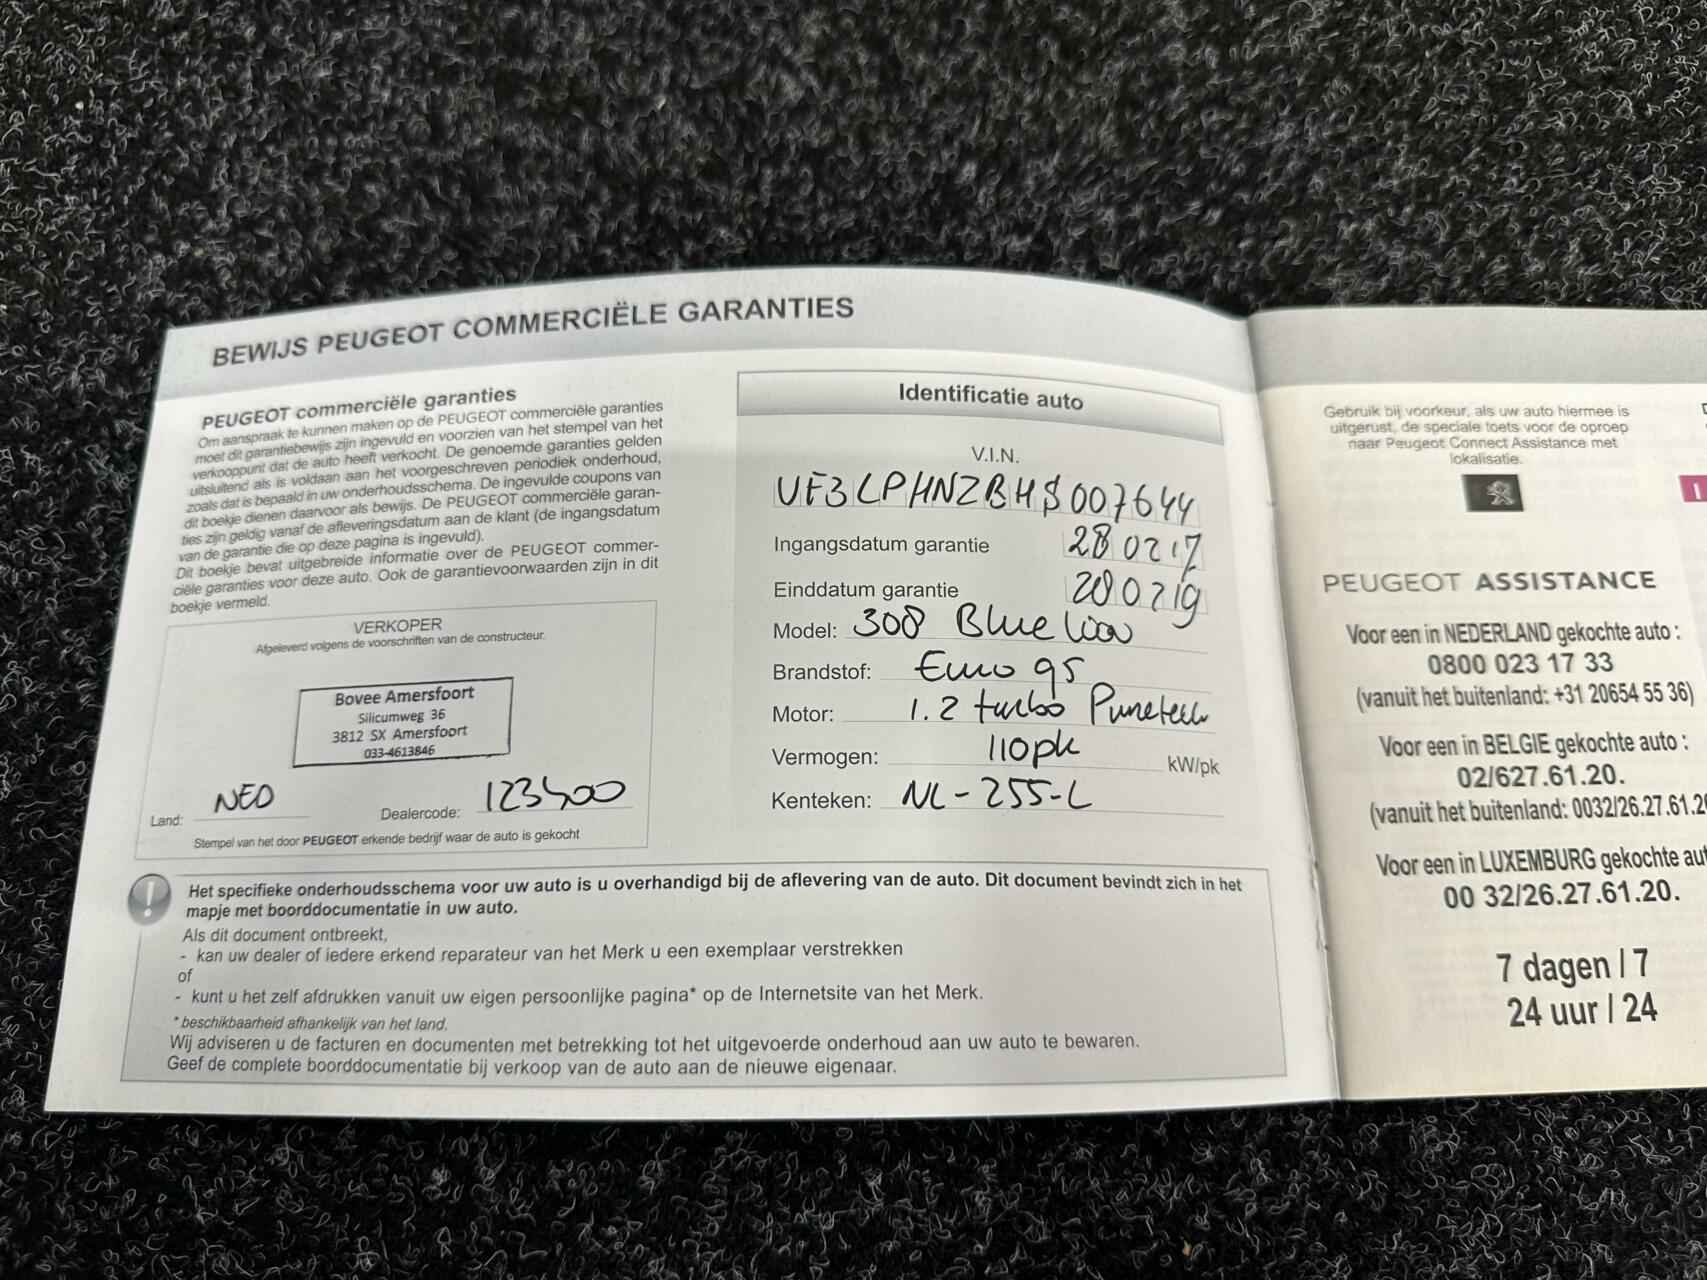 BEWIJS PEUGEOT COMMERCIËLE GARANTIES
PEUGEOT commerciële garanties
Om aanspraak te kunnen maken op de PEUGEOT commerciële garanties
moet dit garantiebewijs zijn ingevuld en voorzien van het stempel van het
verkooppunt dat de auto heeft verkocht. De genoemde garanties gelden
uitsluitend als is voldaan aan het voorgeschreven periodiek onderhoud,
zoals dat is bepaald in uw onderhoudsschema. De ingevulde coupons van
dit boekje dienen daarvoor als bewijs. De PEUGEOT commerciële garan-
ties zijn geldig vanaf de afleveringsdatum aan de klant (de ingangsdatum
van de garantie die op deze pagina is ingevuld).
Dit boekje bevat uitgebreide informatie over de PEUGEOT commer-
ciële garanties voor deze auto. Ook de garantievoorwaarden zijn in dit
boekje vermeld.
VERKOPER
Afgeleverd volgens de voorschriften van de constructeur.
Bovee Amersfoort
Silicumweg 36
3812 SX Amersfoort
033-4613846
Land: NED Dealercode: 123400
Stempel van het door PEUGEOT erkende bedrijf waar de auto is gekocht
Identificatie auto
V.I.N.
VF3LPHNZBHS007644
Ingangsdatum garantie 280217
Einddatum garantie 280219
Model: 308 Blue lion
Brandstof: Euro 95
Motor: 1.2 turbo Puretech
Vermogen: 110pk kW/pk
Kenteken: NL-255-L
Het specifieke onderhoudsschema voor uw auto is u overhandigd bij de aflevering van de auto. Dit document bevindt zich in het
mapje met boorddocumentatie in uw auto.
Als dit document ontbreekt,
- kan uw dealer of iedere erkend reparateur van het Merk u een exemplaar verstrekken
of
- kunt u het zelf afdrukken vanuit uw eigen persoonlijke pagina* op de Internetsite van het Merk.
* beschikbaarheid afhankelijk van het land.
Wij adviseren u de facturen en documenten met betrekking tot het uitgevoerde onderhoud aan uw auto te bewaren.
Geef de complete boorddocumentatie bij verkoop van de auto aan de nieuwe eigenaar.
Gebruik bij voorkeur, als uw auto hiermee is
uitgerust, de speciale toets voor de oproep
naar Peugeot Connect Assistance met
lokalisatie.
PEUGEOT ASSISTANCE
Voor een in NEDERLAND gekochte auto :
0800 023 17 33
(vanuit het buitenland: +31 20654 55 36)
Voor een in BELGIE gekochte auto :
02/627.61.20.
(vanuit het buitenland: 0032/26.27.61.2
Voor een in LUXEMBURG gekochte aut
00 32/26.27.61.20.
7 dagen / 7
24 uur / 24